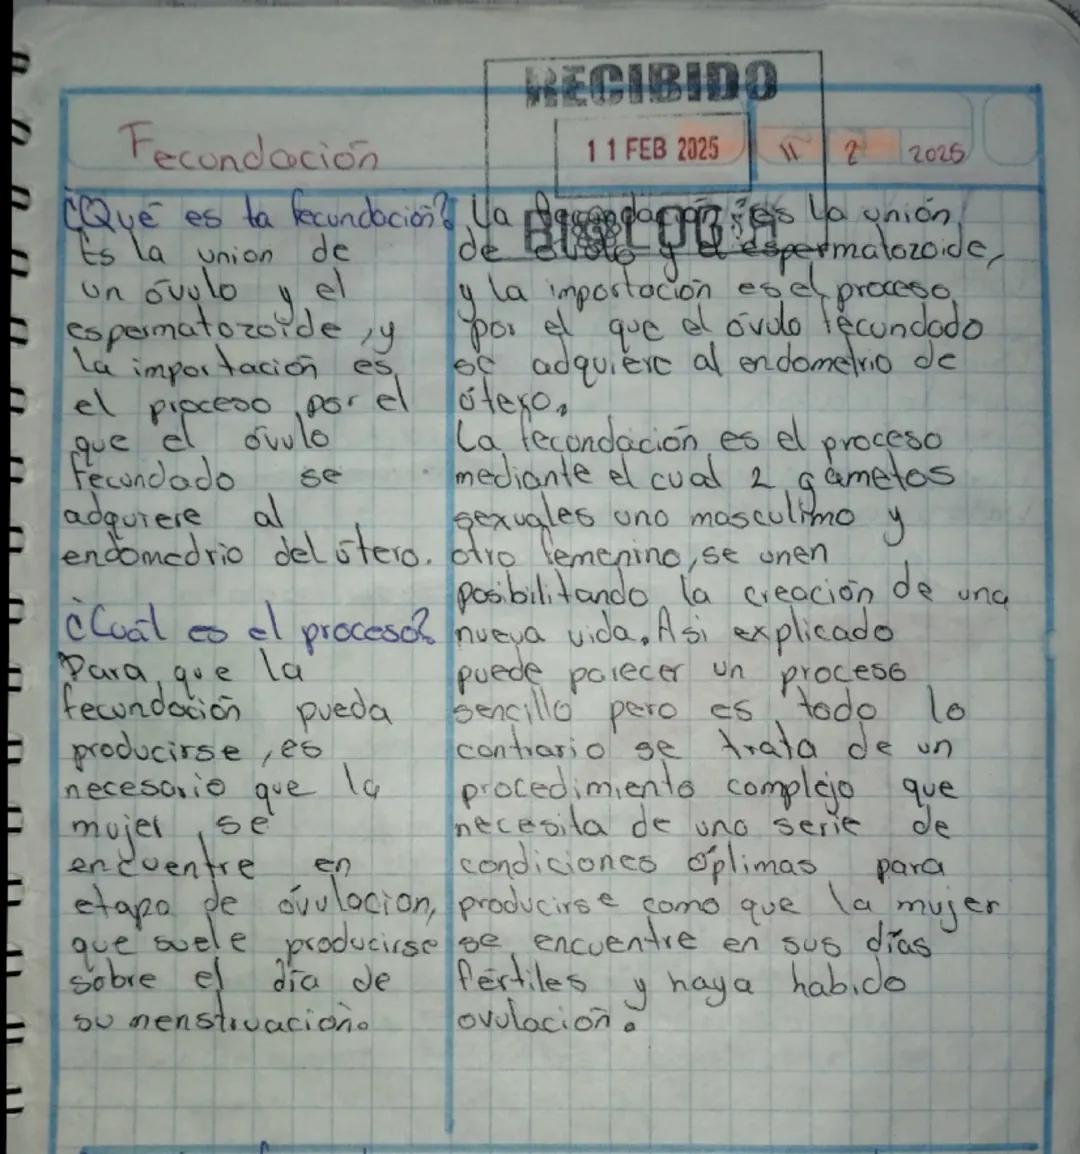 RECIBIDO
11 FEB 2025
BIOLOGIA
Fecundación
11 2 2025
¿Qué es la fecundación?
Es la union de
un óvulo y el
espermatozoide, y
la importación es
el proceso por el
que el óvulo
fecundado se
adquiere al
endomedrio del útero.
¿Cuál es el proceso?
Para que la
fecundación pueda
producirse, es
necesario que la
mujer se
encuentre en
etapa de óvulacion,
que suele producirse
sobre el día de
su menstruación.
La es la unión
de óvulo y el espermatozoide,
y la importación es el proceso
por el que el óvulo fecundado
se adquiere al endometrio de
útero.
La fecondación es el proceso
mediante el cual 2 gametos
sexuales uno masculimo y
otro femenino, se unen
posibilitando la creación de una
nueva vida. Asi explicado
puede parecer un proceso
sencillo pero es todo lo
contrario se trata de un
procedimiento complejo que
necesita de una serie de
condiciones óplimas para
producirse como que la mujer
se encuentre en sus días
fértiles y haya habido
ovulación.